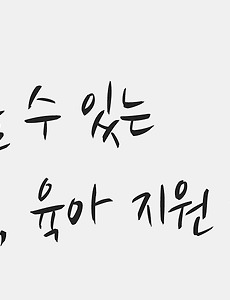 수 있는
, 육아 지원